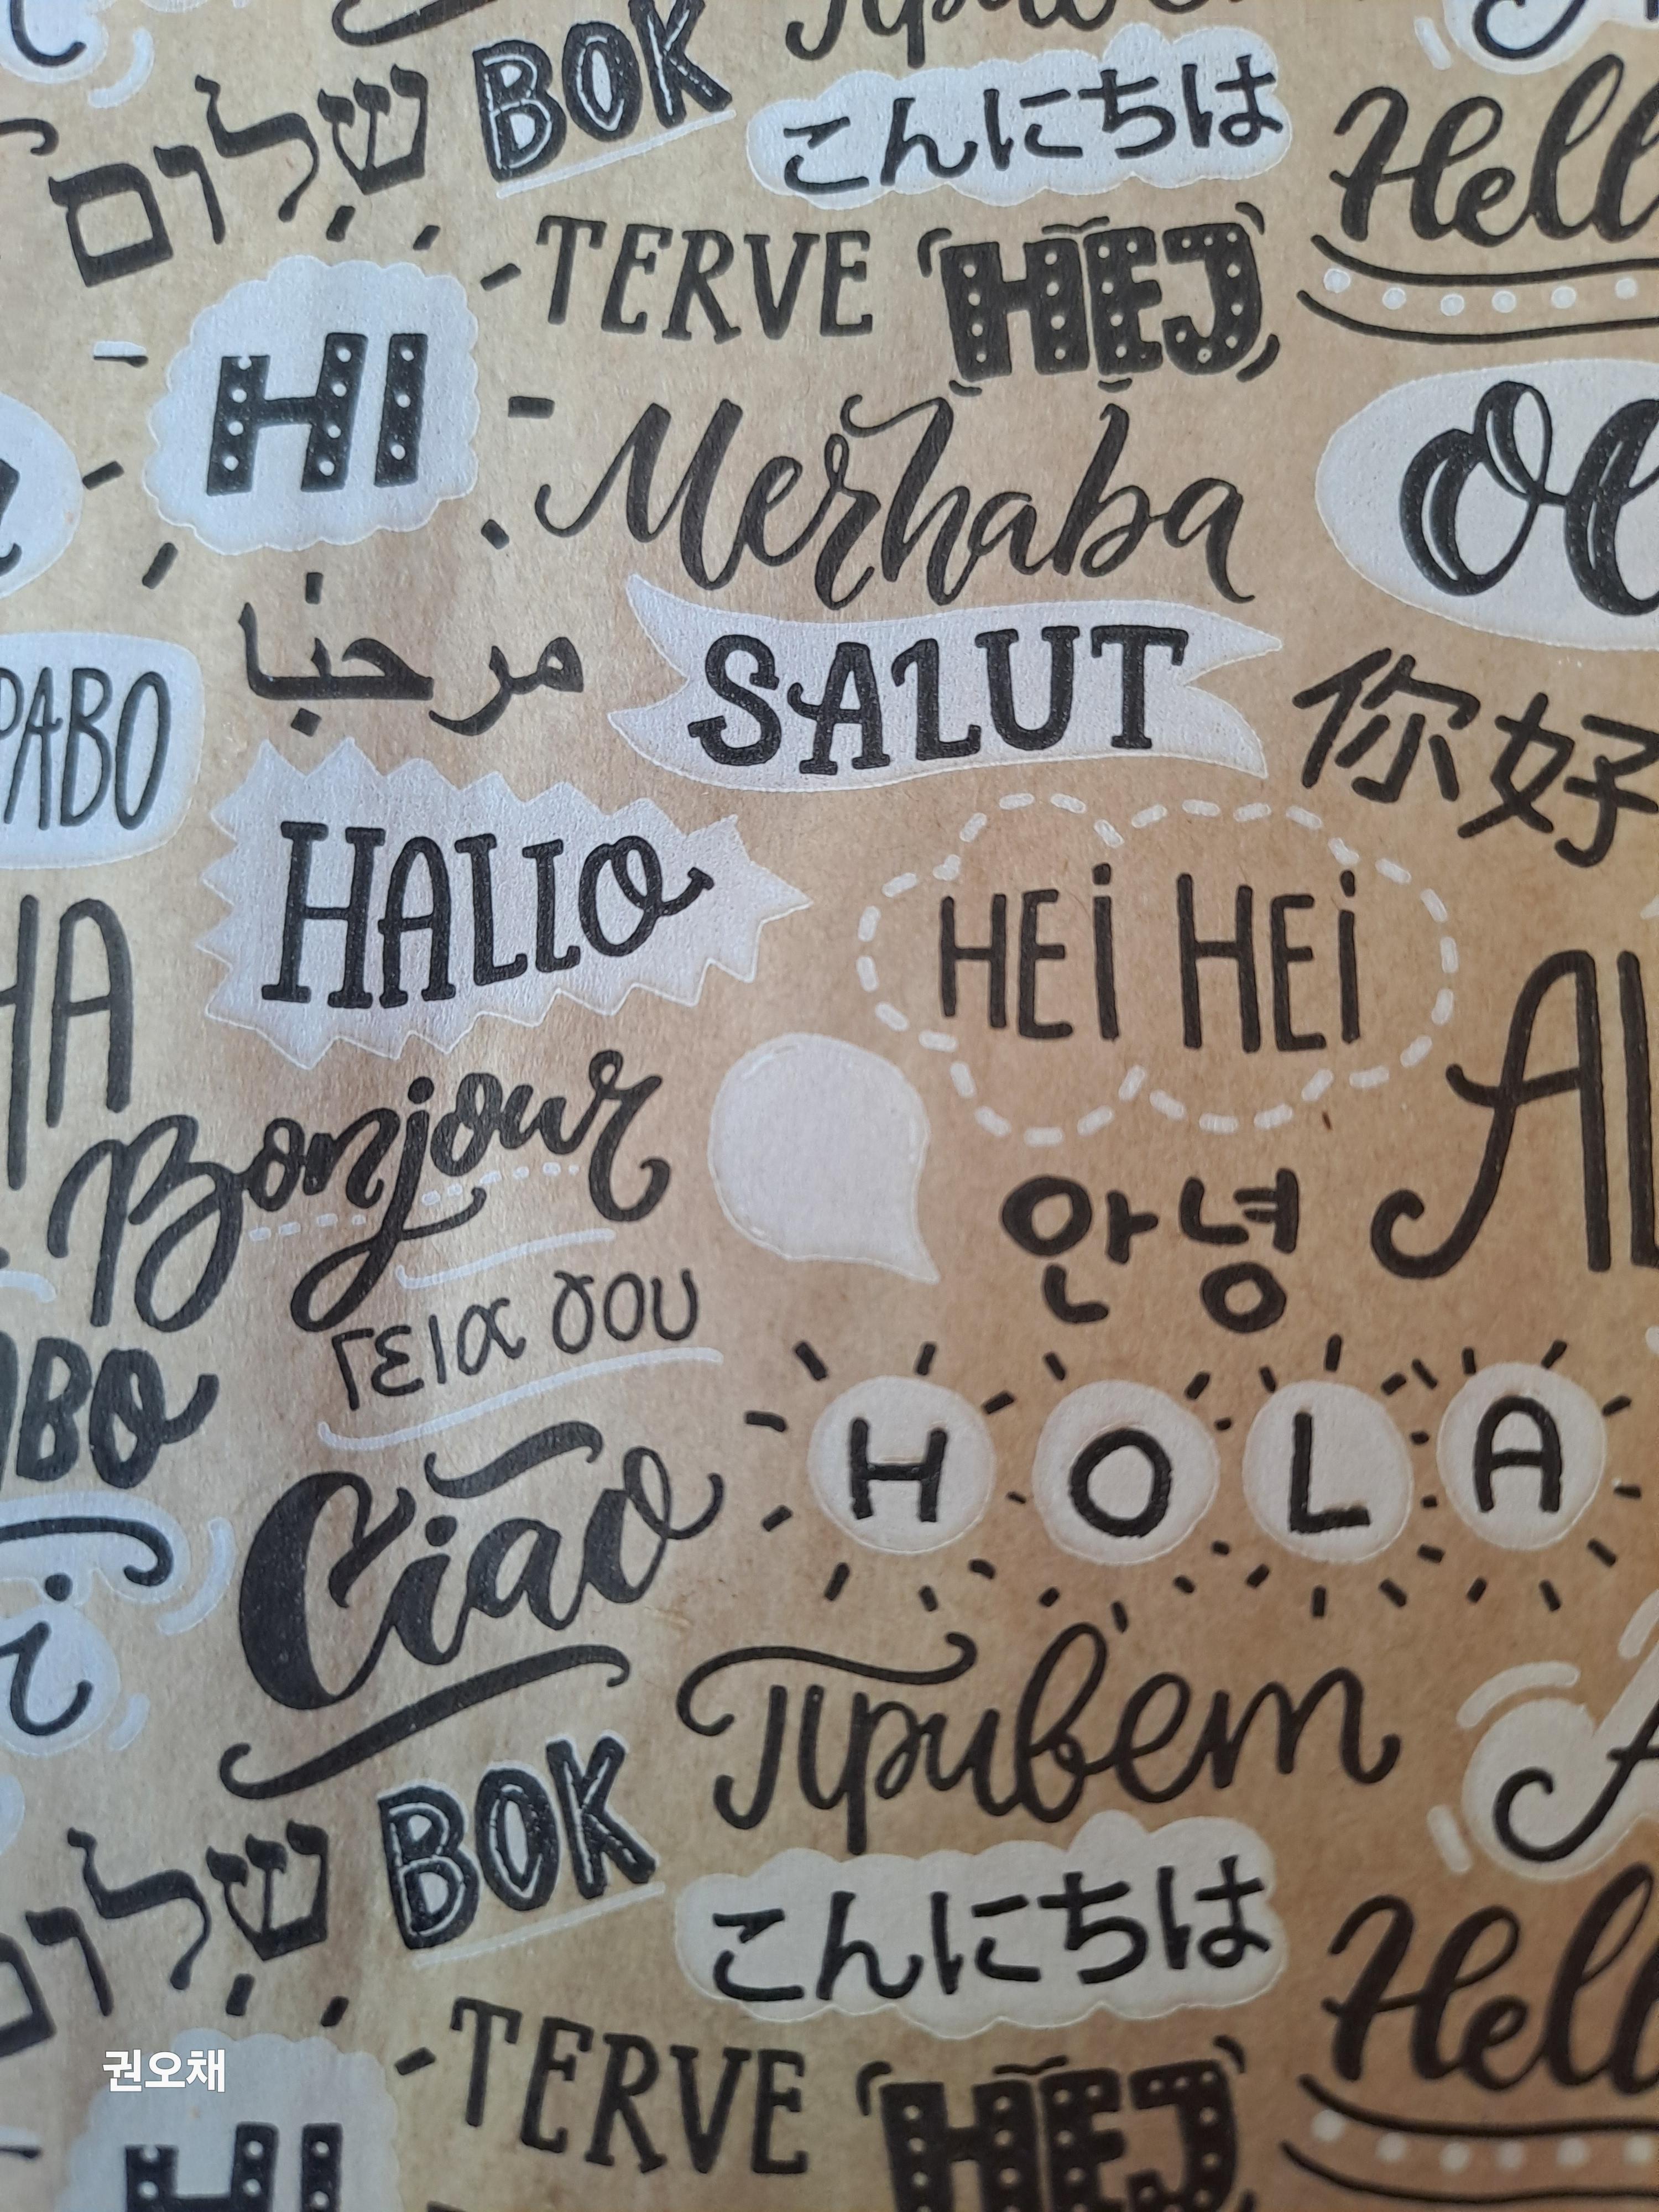 BOK
こんにちは
שלום
Hell
TERVE
HEJ
HI
Merhaba
مرحبا
SALUT
PABO
你好
HALLO
HEi HEi
HA
Bonjour
AL
안녕
Γεια σου
BO
HOLA
Ciao
Привет
BOK
こんにちは
שלו
Hell
TERVE
HEJ
권오채
HI